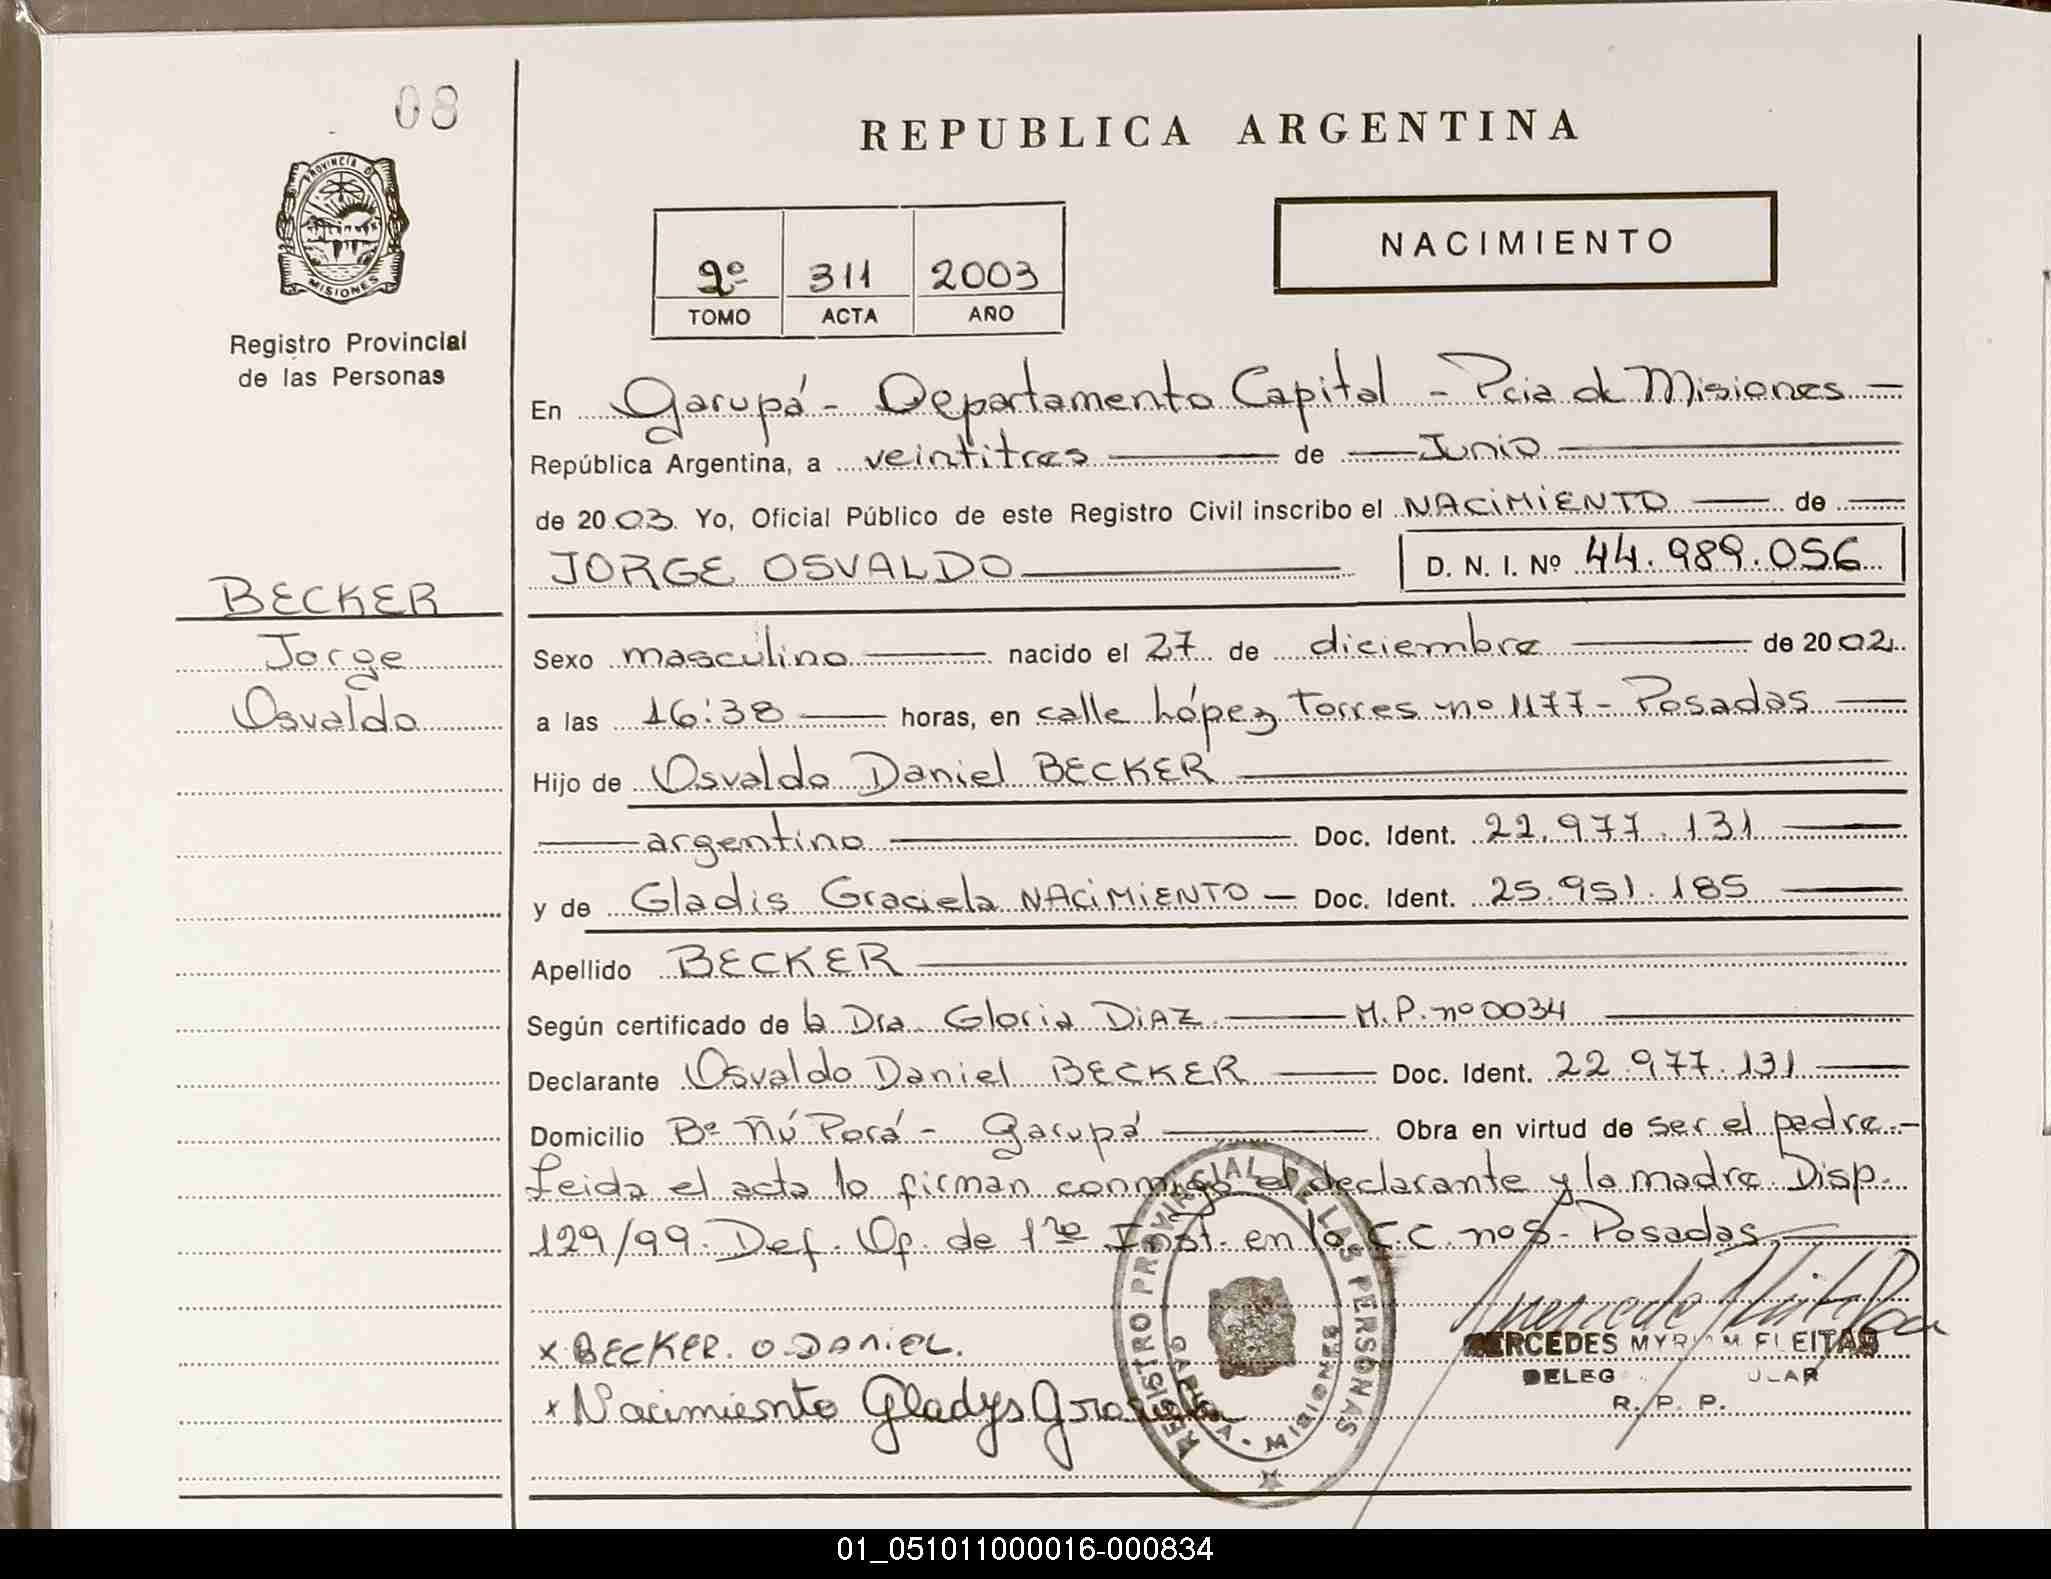 08
REPUBLICA ARGENTINA
PROVINCIA D
MISIONES
Registro Provincial
de las Personas
2º 311 2003
TOMO ACTA AÑO
NACIMIENTO
En Garupá - Departamento Capital - Pcia de Misiones
República Argentina, a veintitres de Junio
de 2003. Yo, Oficial Público de este Registro Civil inscribo el NACIMIENTO de
JORGE OSVALDO D. N. I. Nº 44.989.056
BECKER
Jorge
Osvaldo
Sexo masculino nacido el 27 de diciembre de 2002
a las 16:38 horas, en calle López Torres nº 1177 - Posadas
Hijo de Osvaldo Daniel BECKER
argentino Doc. Ident. 22.977.131
y de Gladis Graciela NACIMIENTO Doc. Ident. 25.951.185
Apellido BECKER
Según certificado de la Dra. Gloria DIAZ M.P. nº 0034
Declarante Osvaldo Daniel BECKER Doc. Ident. 22.977.131
Domicilio Bº Ñú Porá - Garupá Obra en virtud de ser el padre.-
Leida el acta lo firman conmigo el declarante y la madre. Disp.
129/99. Def. Of. de 1ra Inst. en lo C.C. nº 5 - Posadas
x BECKER. O. DANIEL.
x Nacimiento Gladys Graciela
REGISTRO PROVINCIAL DE LAS PERSONAS
GARUPA - MISIONES
MERCEDES MYRIAM FLEITAS
R. P. P.
01_051011000016-000834